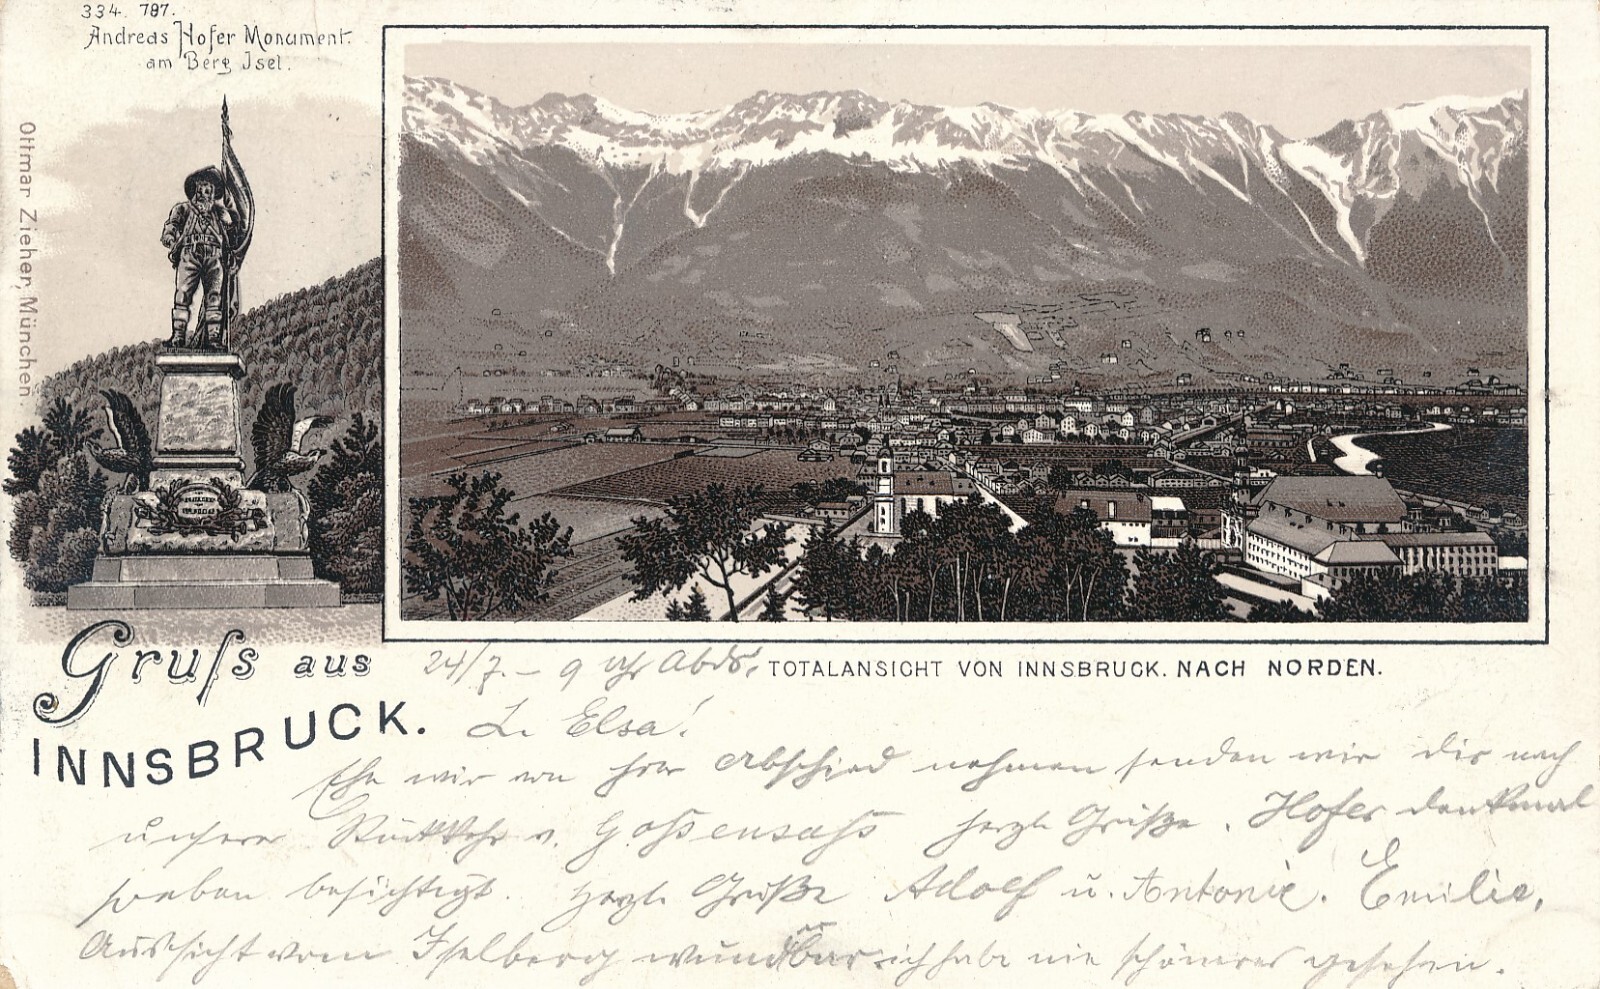 334. 787.
Andreas Hofer Monument.
am Berg Isel.
Ottmar Zieher, München
Gruſs aus
INNSBRUCK.
TOTALANSICHT VON INNSBRUCK. NACH NORDEN.
24/7. – 9 Uhr Abds.
L. Elsa!
Ehe wir von hier Abschied nehmen senden wir dir nach
unserer Rückkehr v. Goßensaß herzl. Grüße. Hofer denkmal
soeben besichtigt. Herzl. Grüße Adolf u. Antonie. Emilie.
Aussicht vom Iselberg wunderbar ich habe nie schöneres gesehen.